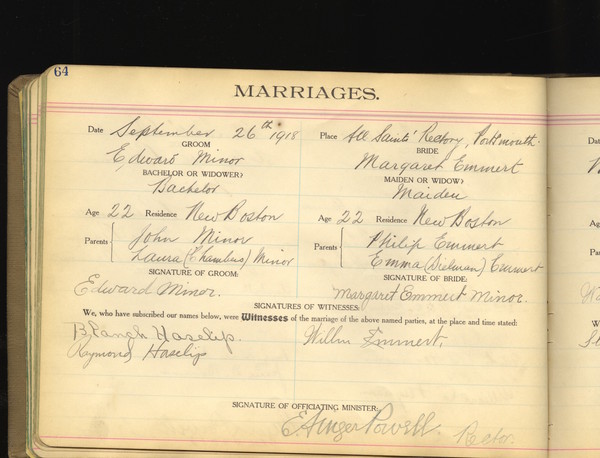 64
MARRIAGES.
Date September 26th 1918 Place All Saints' Rectory, Portsmouth.
GROOM BRIDE
Edward Minor Margaret Emmert
BACHELOR OR WIDOWER? MAIDEN OR WIDOW?
Bachelor Maiden
Age 22 Residence New Boston Age 22 Residence New Boston
Parents John Minor Parents Philip Emmert
Laura (Chambus) Minor Emma (Diehman) Emmert
SIGNATURE OF GROOM: SIGNATURE OF BRIDE:
Edward Minor. Margaret Emmert Minor.
SIGNATURES OF WITNESSES:
We, who have subscribed our names below, were Witnesses of the marriage of the above named parties, at the place and time stated:
Blanch Haselip. Emmert.
Raymond Haselip
SIGNATURE OF OFFICIATING MINISTER:
E. Ainger Powell. Rector.